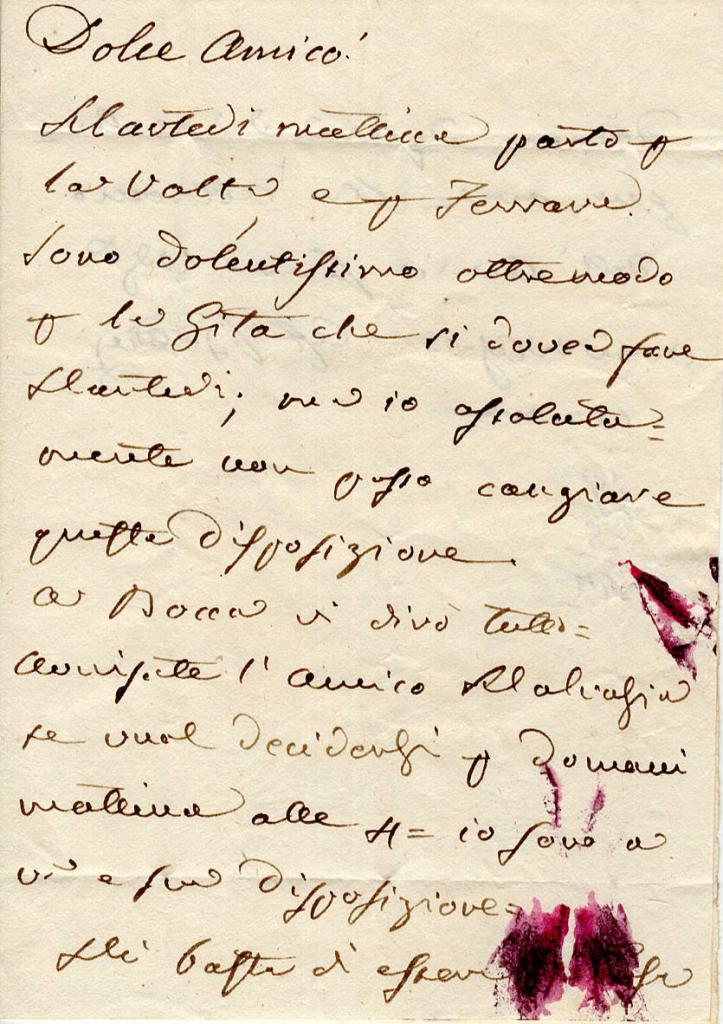 Dolce Amico!
Martedi mattina parto p
la Volta, e p Ferrara.
Sono dolentissimo oltremodo
p la Gita che si dovea fare
Martedi; ma io assoluta=
mente non posso cangiare
questa disposizione.
A Bocca vi dirò tutto=
Avvisate l'amico Malvasia
se vuol decidersi p domani
mattina alle 4= io sono a
v.a e sua disposizione=
Mi basta di essere